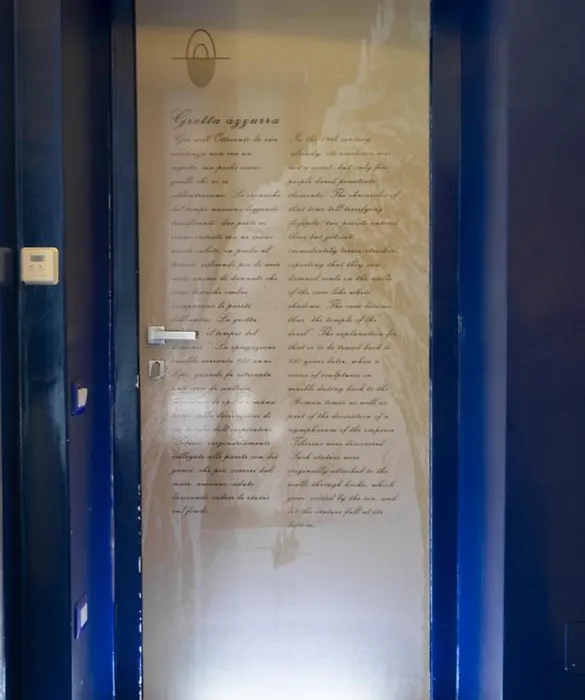 Grotta azzurra
Già nell'Ottocento la sua
esistenza non era un
segreto ma pochi erano
quelli che vi si
addentravano. Le cronache
del tempo narrano leggende
terrificanti: due preti vi
erano entrati ma ne erano
usciti subito, in preda al
terrore
come bianche ombre
le pareti
dell'antro. La grotta
il tempio del
La spiegazione
sarebbe arrivata 250 anni
dopo, quando fu ritrovata
una serie di sculture
romana
di
originariamente
collegate alle pareti con dei
ganci, che poi, corrosi dal
mare, avevano
lasciando cadere le statue
sul fondo.
In the 19th century
already, its existence was
not a secret, but only few
people dared penetrate
The chronicles of
that time tell terrifying
legends: two priests entered
there but got out
immediately terror-stricken
reporting that they saw
damned souls on the walls
of the cave like white
shadows. The cave became
thus "the temple of the
devil". The explanation for
that is to be traced back to
250 years later, when a
series of sculptures in
marble dating back to the
Roman times as well as
part of the decoration of a
nymphaeum of the emperor
Tiberius were discovered.
Such statues were
originally attached to the
walls through hooks, which
were eroded by the sea, and
let the statues fall at the
bottom.